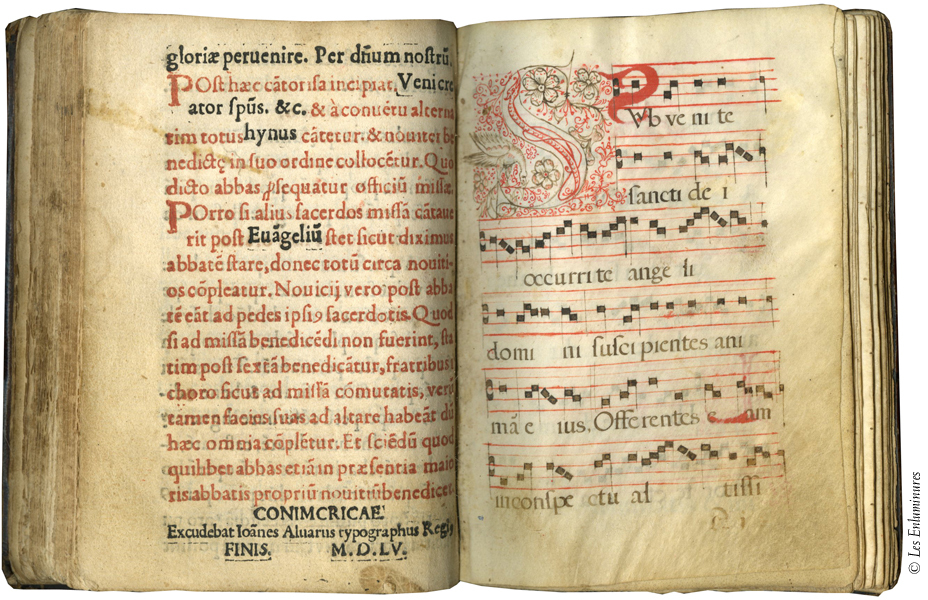 gloriæ peruenire. Per dñum nostrũ.
POst hæc cãtor ista incipiat, Veni cre
ator spũs. &c. & à conuẽtu alterna
tim totus hynus cãtetur: & nouitẽt be
nedictę in suo ordine collocẽtur. Quo
dicto abbas ꝓsequatur officiũ missæ.
POrro si alius sacerdos missã cãtaue
rit post Euãgeliũ stet sicut diximus
abbatẽ stare, donec totũ circa nouiti-
os cõpleatur. Nouicij vero post abba
tẽ eãt ad pedes ipsiꝰ sacerdotis. Quod
si ad missã benedicẽdi non fuerint, sta
tim post sextã benedicãtur, fratribus
choro sicut ad missã cõmutatis, verũ
tamen facies suas ad altare habeãt dũ
hæc omnia cõplẽtur. Et sciẽdũ quod
quilibet abbas etiã in præsentia maio
ris abbatis propriũ nouitiũ benedicet.
CONIMCRICAE
Excudebat Ioãnes Aluarus typographus Regis
FINIS. M.D.LV.
SVb ve ni te
sancti de i
occurri te ange li
domi ni susci pientes ani
mã e ius, Offerentes e am
in conspe ctu al tissi
© Les Enluminures